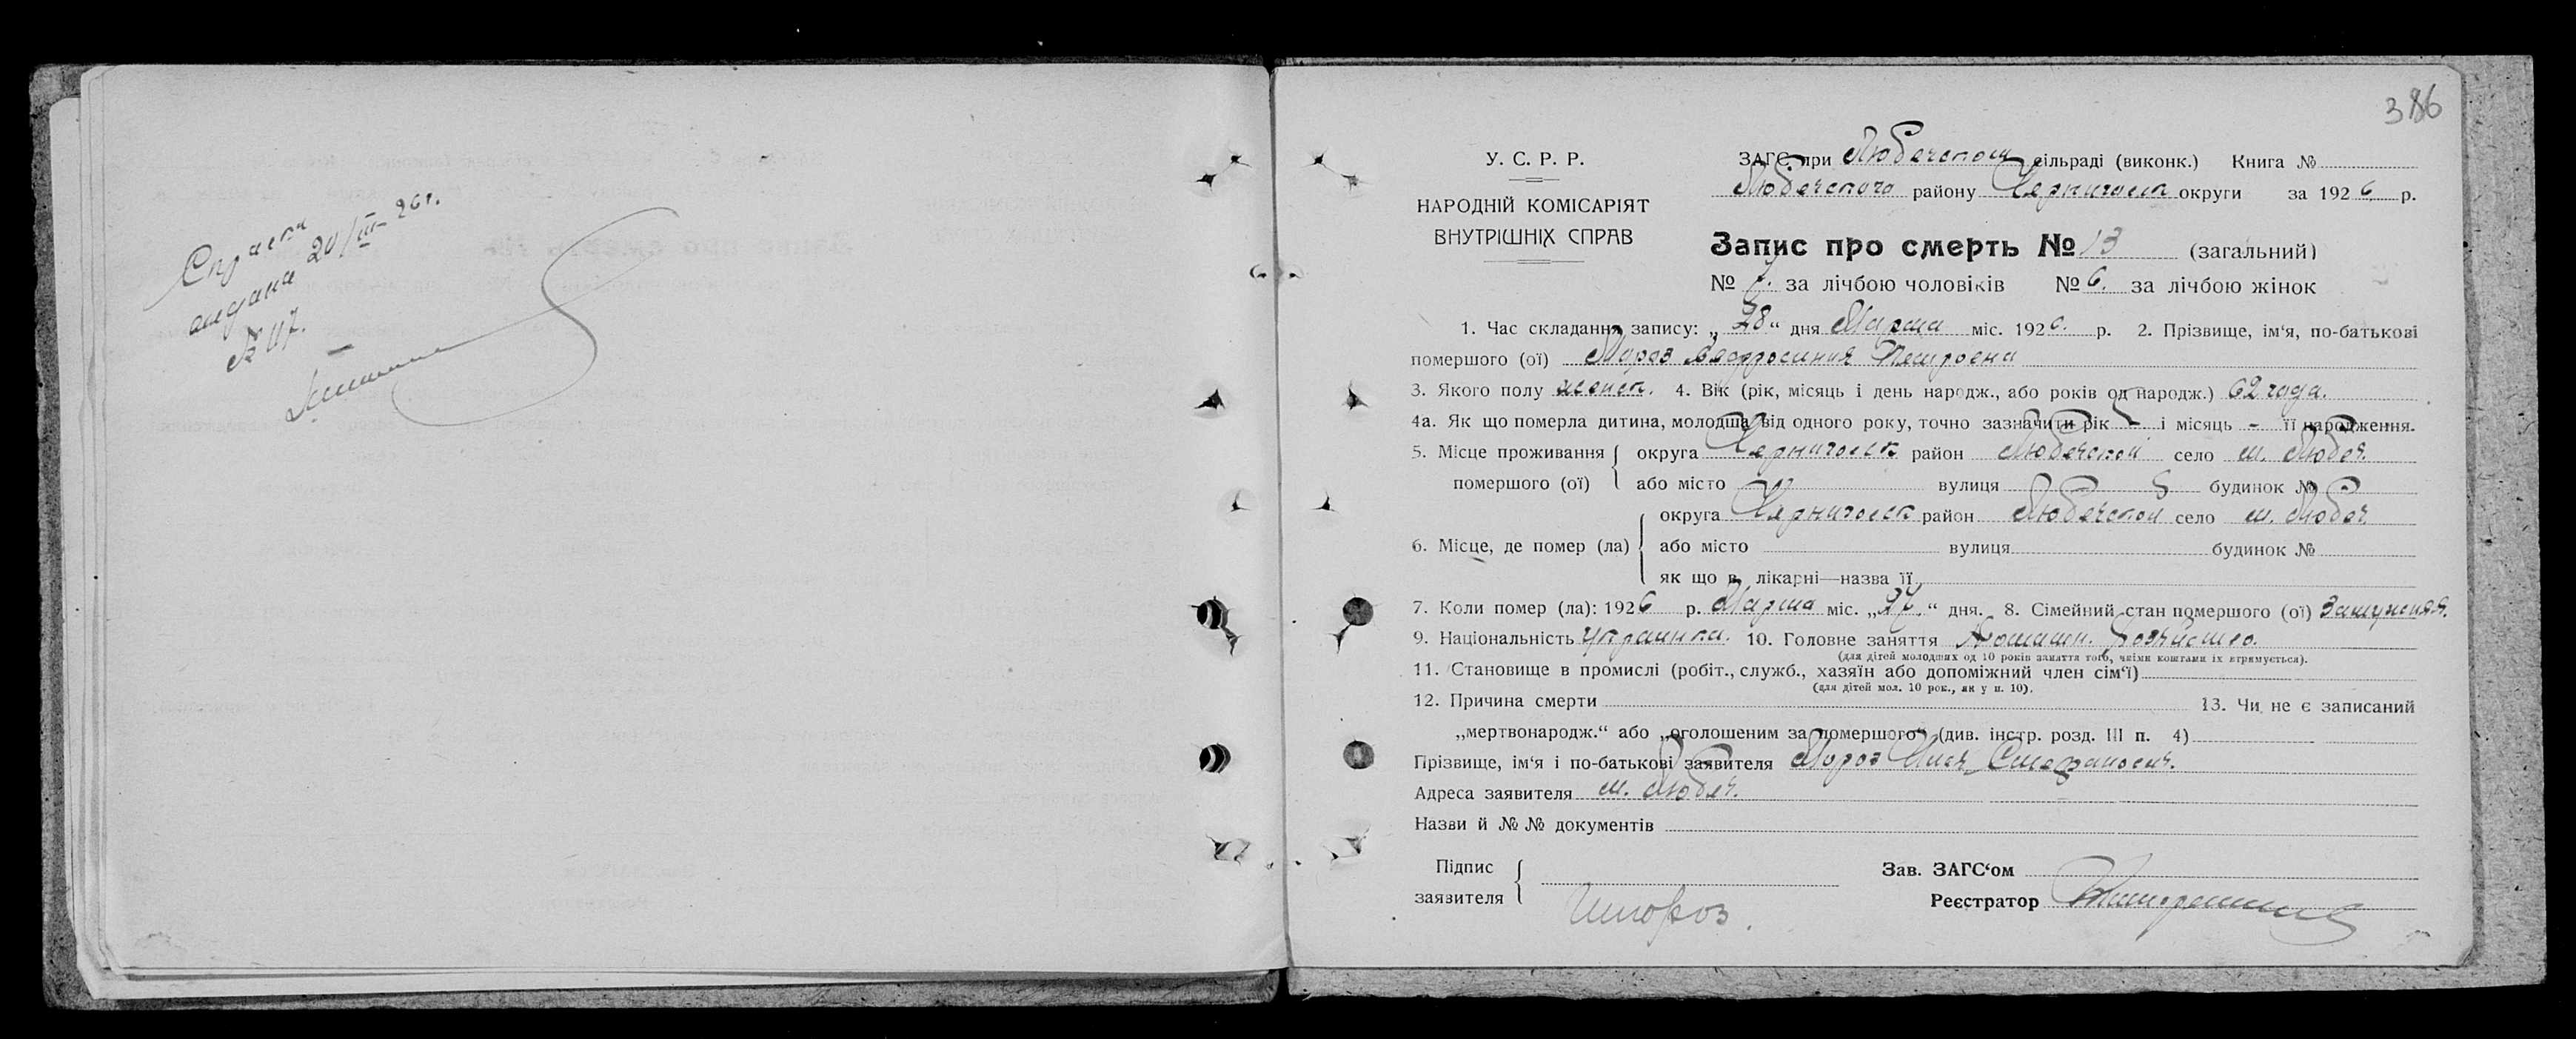 Справка
выдана 20/III-26 г.
№ 117.
386
У. С. Р. Р.
НАРОДНІЙ КОМІСАРІЯТ
ВНУТРІШНІХ СПРАВ
ЗАГС при Любечском сільраді (виконк.) Книга №
Любечского району Черниговск округи за 1926 р.
Запис про смерть № 13 (загальний)
№ 7. за лічбою чоловіків № 6. за лічбою жінок
1. Час складання запису: „28“ дня Марта міс. 1926. р. 2. Прізвище, ім‘я, по-батькові
помершого (ої) Мороз Евфросиния Петровна
3. Якого полу женск. 4. Вік (рік, місяць і день народж., або років од народж.) 62 года.
4а. Як що померла дитина, молодша від одного року, точно зазначити рік - і місяць - її народження.
5. Місце проживання помершого (ої) округа Черниговск район Любечский село м. Любеч.
або місто вулиця будинок №
6. Місце, де помер (ла) округа Черниговск район Любечский село м. Любеч.
або місто вулиця будинок №
як що в лікарні—назва її
7. Коли помер (ла): 1926 р. Марта міс. „27.“ дня. 8. Сімейний стан помершого (ої) Замужняя.
9. Національність Украинка. 10. Головне заняття Домашн. Хозяйство.
(для дітей молодших од 10 років заняття того, чиїми коштами їх втримується).
11. Становище в промислі (робіт., служб., хазяїн або допоміжний член сім‘ї)
(для дітей мол. 10 рок., як у п. 10).
12. Причина смерти 13. Чи не є записаний
„мертвонародж.“ або „оголошеним за помершого“ (див. інстр. розд. III п. 4)
Прізвище, ім‘я і по-батькові заявителя Мороз Илья Стефанович.
Адреса заявителя м. Любеч.
Назви й № № документів
Підпис заявителя
ИМороз.
Зав. ЗАГС‘ом
Реєстратор